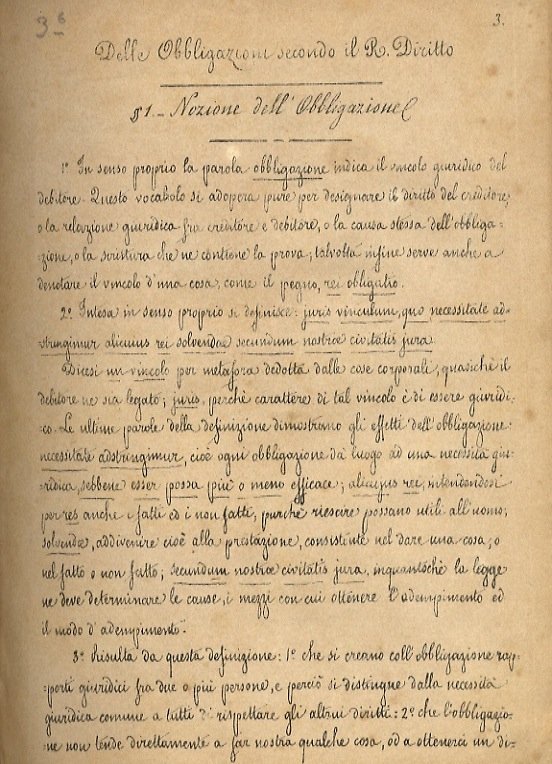 3.
3⁶
Delle Obbligazioni secondo il R. Diritto
§1 – Nozione dell'Obbligazione
1º In senso proprio la parola obbligazione indica il vincolo giuridico del
debitore. Questo vocabolo si adopera pure per designare il diritto del creditore,
o la relazione giuridica fra creditore e debitore, o la causa stessa dell'obbliga=
=zione, o la scrittura che ne contiene la prova; talvolta infine serve anche a
denotare il vincolo d'una cosa, come il pegno, rei obligatio.
2º Intesa in senso proprio si definisce: juris vinculum, quo necessitate ad=
stringimur alicuius rei solvendæ secundum nostræ civitatis jura.
Dicesi un vincolo per metafora dedotta dalle cose corporali, quasichè il
debitore ne sia legato; juris, perchè carattere di tal vincolo è di essere giuridi=
=co. Le ultime parole della definizione dimostrano gli effetti dell'obbligazione:
necessitate adstringimur, cioè ogni obbligazione dà luogo ad una necessità giu=
=ridica, sebbene esser possa più o meno efficace; alicujus rei, intendendosi
per res anche i fatti ed i non fatti, purchè riescire possano utili all'uomo;
solvendæ, addivenire cioè alla prestazione, consistente nel dare una cosa, o
nel fatto o non fatto; secundum nostræ civitatis jura, inquantochè la legge
ne deve determinare le cause, i mezzi con cui ottenere l'adempimento ed
il modo d'adempimento.
3º Risulta da questa definizione: 1º che si creano coll'obbligazione rap=
=porti giuridici fra due o più persone, e perciò si distingue dalla necessità
giuridica comune a tutti di rispettare gli altrui diritti: 2º che l'obbligazio=
=ne non tende direttamente a far nostra qualche cosa, od a ottenerci un di=